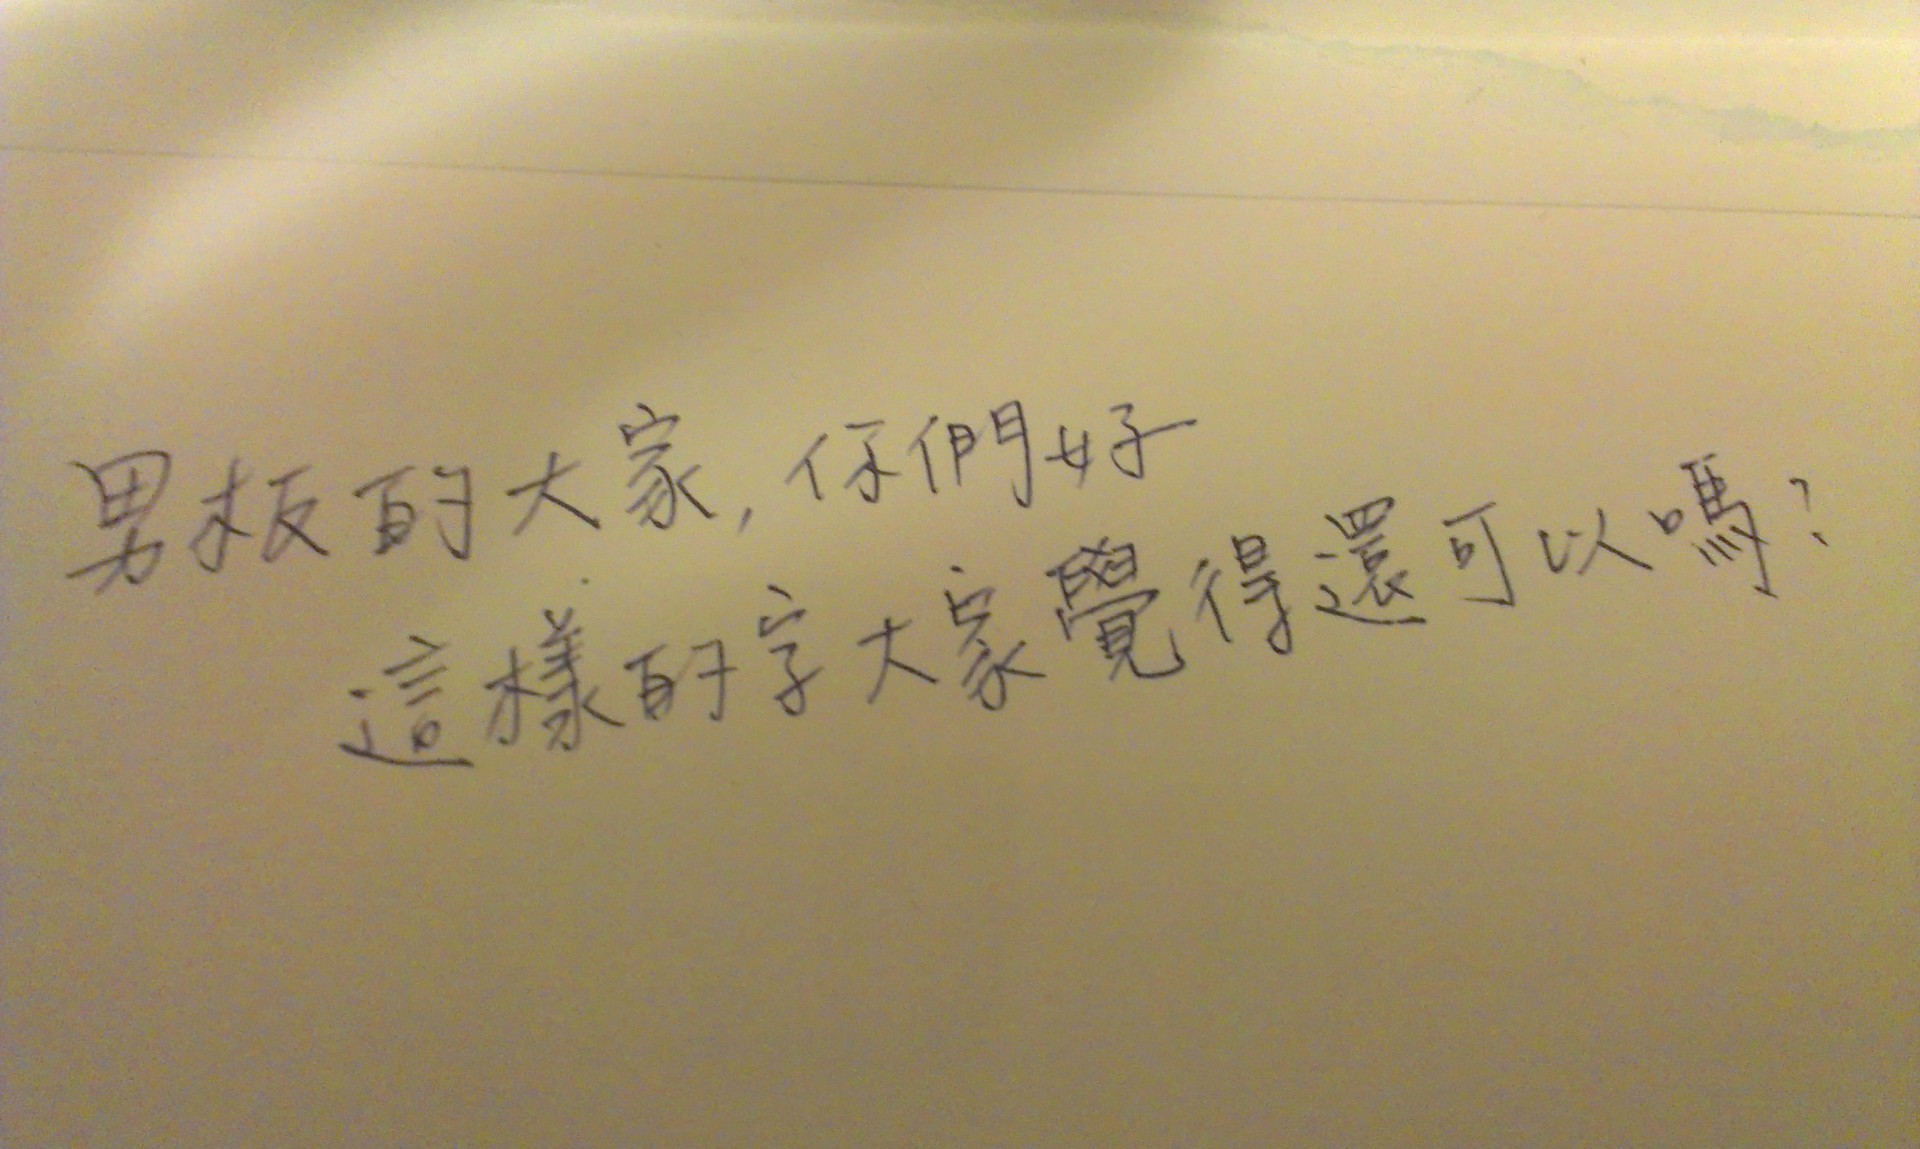 男板的大家,你們好
這樣的字大家覺得還可以嗎?